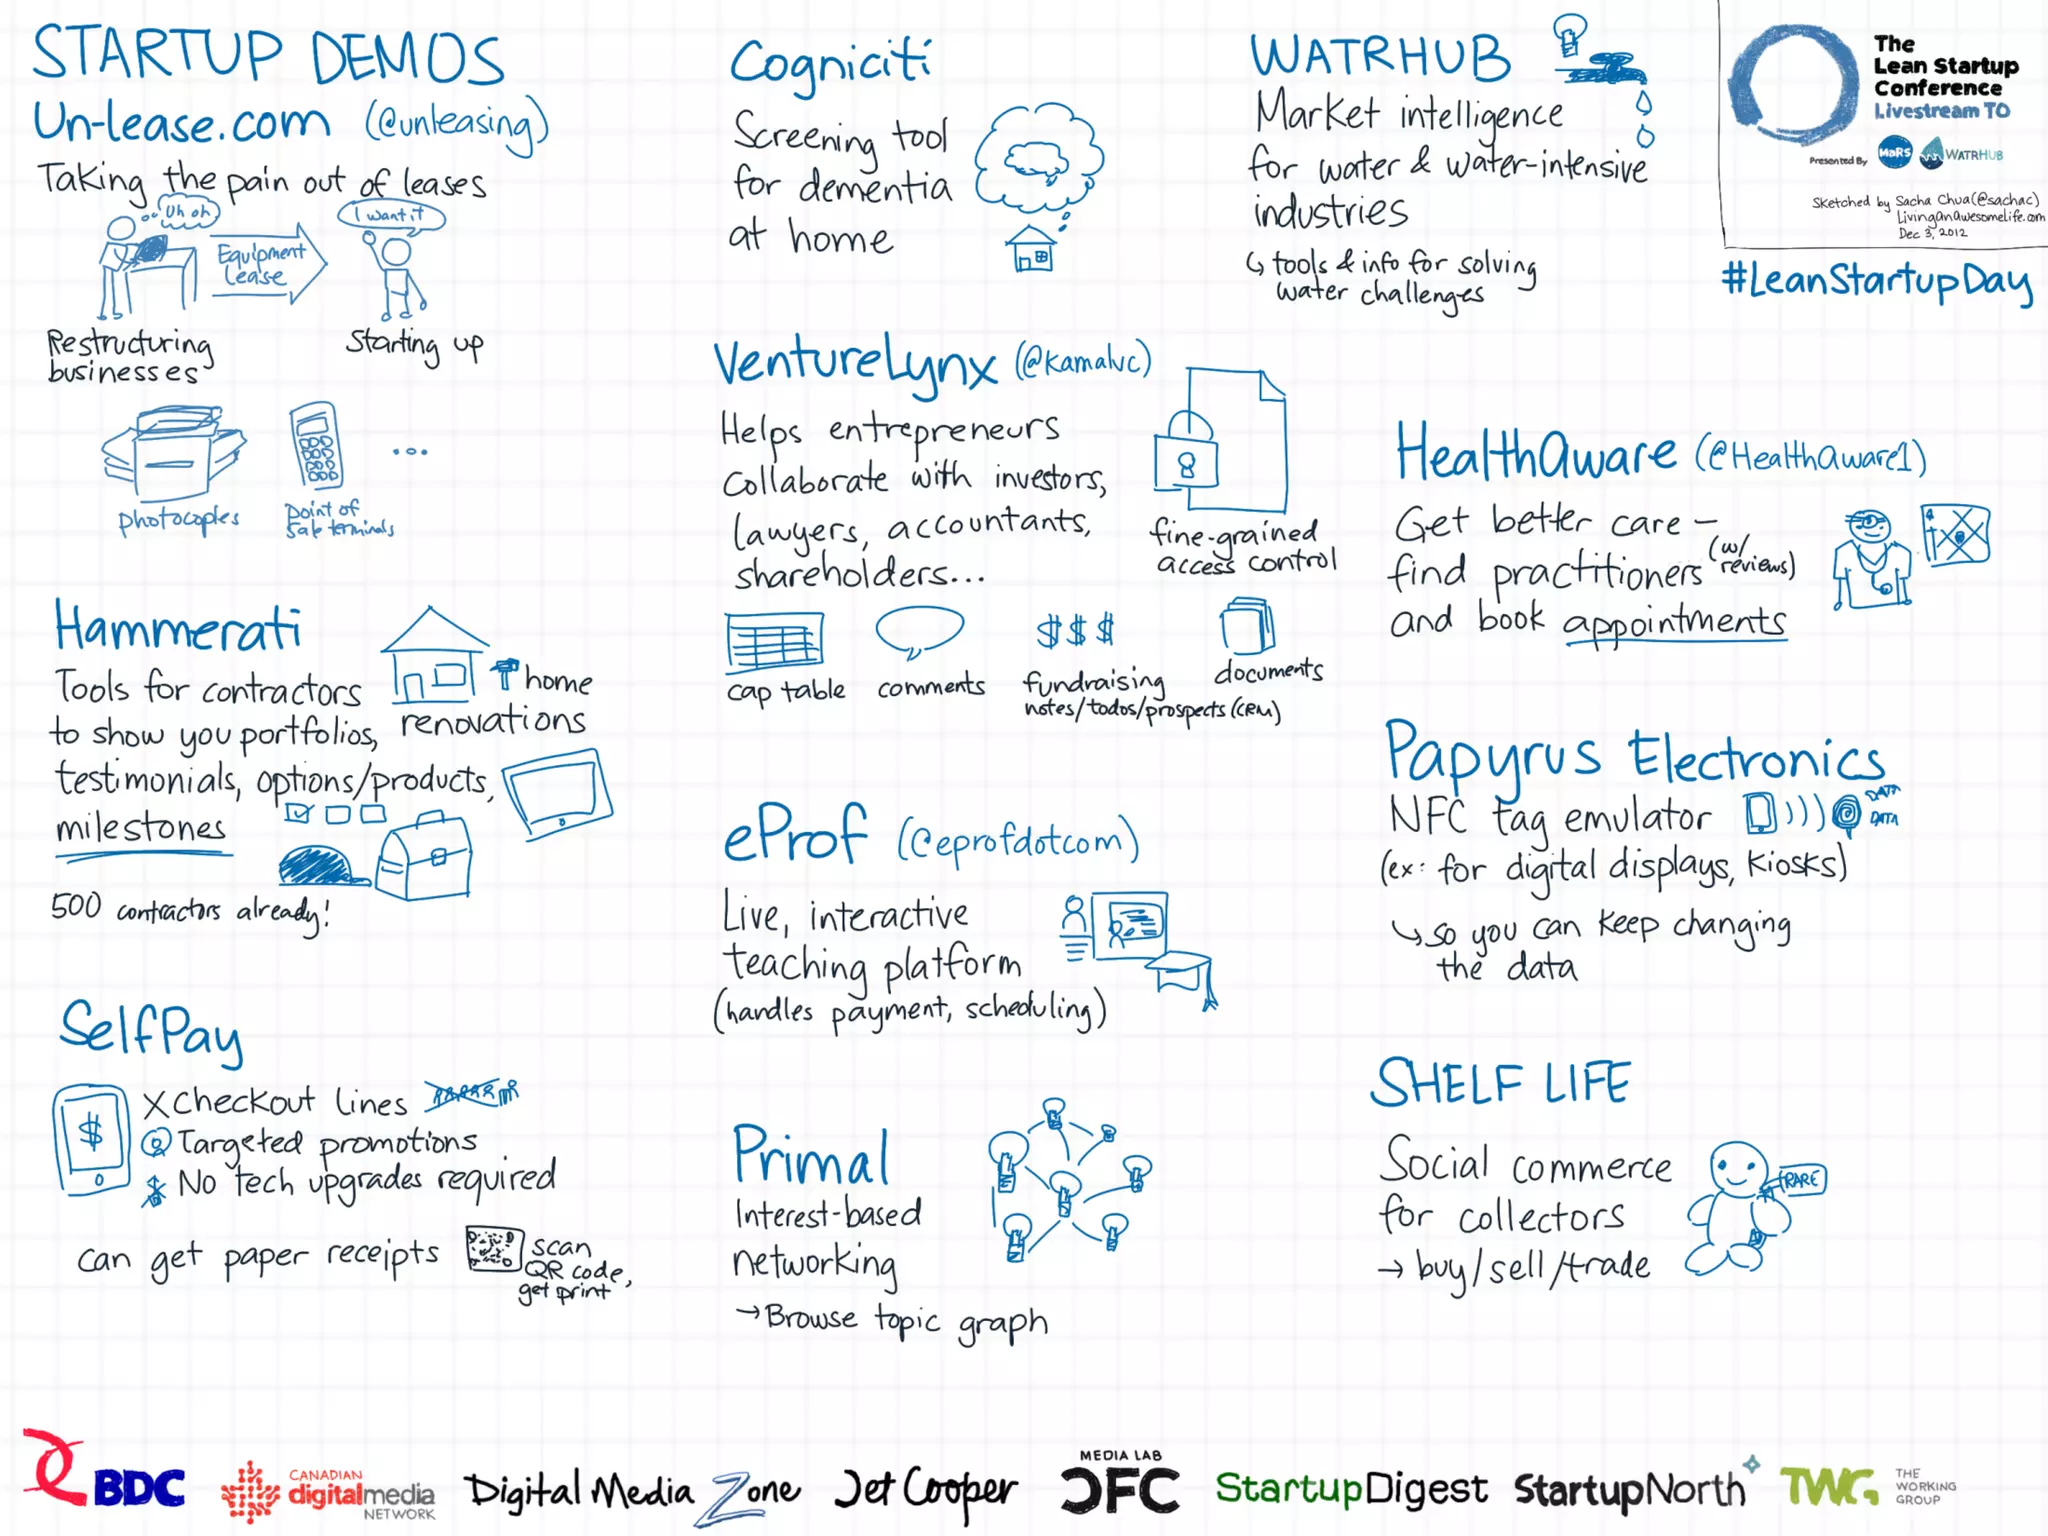 STARTUP DEMOS
Un-lease.com (@unleasing)
Taking the pain out of leases
Uh oh
I want it
Equipment
Lease
Restructuring
businesses
Starting up
photocopies
point of
sale terminals
...
Hammerati
Tools for contractors
to show you portfolios,
testimonials, options/products,
milestones
home
renovations
500 contractors already!
SelfPay
$
X Checkout lines
Targeted promotions
No tech upgrades required
can get paper receipts
scan
QR code,
get print
Cogniciti
Screening tool
for dementia
at home
VentureLynx (@kamalvc)
Helps entrepreneurs
collaborate with investors,
lawyers, accountants,
shareholders...
fine-grained
access control
cap table
comments
$ $ $
fundraising
notes/todos/prospects (CRM)
documents
eProf (@eprofdotcom)
Live, interactive
teaching platform
(handles payment, scheduling)
Primal
Interest-based
networking
→ Browse topic graph
WATRHUB
Market intelligence
for water & water-intensive
industries
↳ tools & info for solving
water challenges
The
Lean Startup
Conference
Livestream TO
Presented By MaRS WATRHUB
Sketched by Sacha Chua (@sachac)
LivingAnAwesomeLife.com
Dec 3, 2012
#LeanStartupDay
HealthAware (@HealthAware1)
Get better care –
find practitioners (w/
reviews)
and book appointments
Papyrus Electronics
NFC tag emulator
DATA
DATA
(ex: for digital displays, kiosks)
↳ so you can keep changing
the data
SHELF LIFE
Social commerce
for collectors
→ buy/sell/trade
RARE
BDC
CANADIAN
digitalmedia
NETWORK
Digital Media Zone
Jet Cooper
MEDIA LAB
CFC
StartupDigest
StartupNorth
TWG
THE
WORKING
GROUP